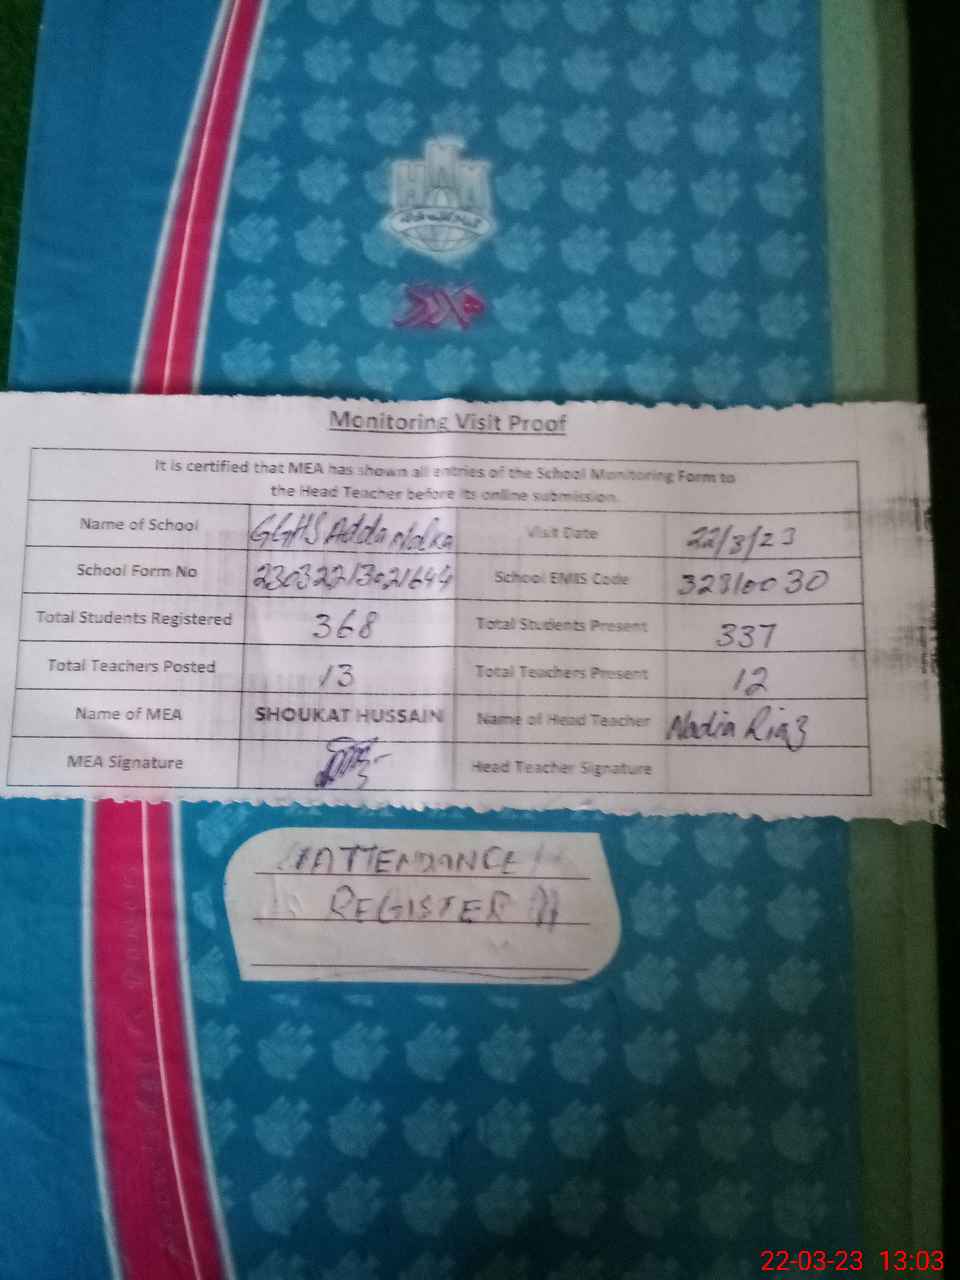 HNM
Monitoring Visit Proof
It is certified that MEA has shown all entries of the School Monitoring Form to
the Head Teacher before its online submission.
Name of School GGHS Adda Visit Date 22/3/23
School Form No 230322213021644 School EMIS Code 32310030
Total Students Registered 368 Total Students Present 337
Total Teachers Posted 13 Total Teachers Present 12
Name of MEA SHOUKAT HUSSAIN Name of Head Teacher Nadia Riaz
MEA Signature Head Teacher Signature
ATTENDANCE
REGISTER
22-03-23 13:03